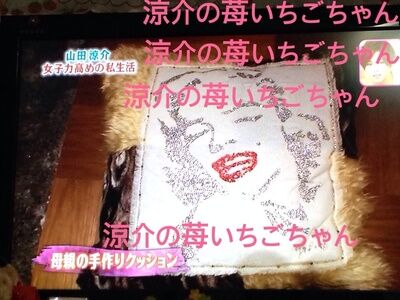 涼介の苺いちごちゃん
山田 涼介
女子力高めの私生活
涼介の苺いちごちゃん
涼介の苺いちごちゃん
涼介の苺いちごちゃん
母親の手作りクッション